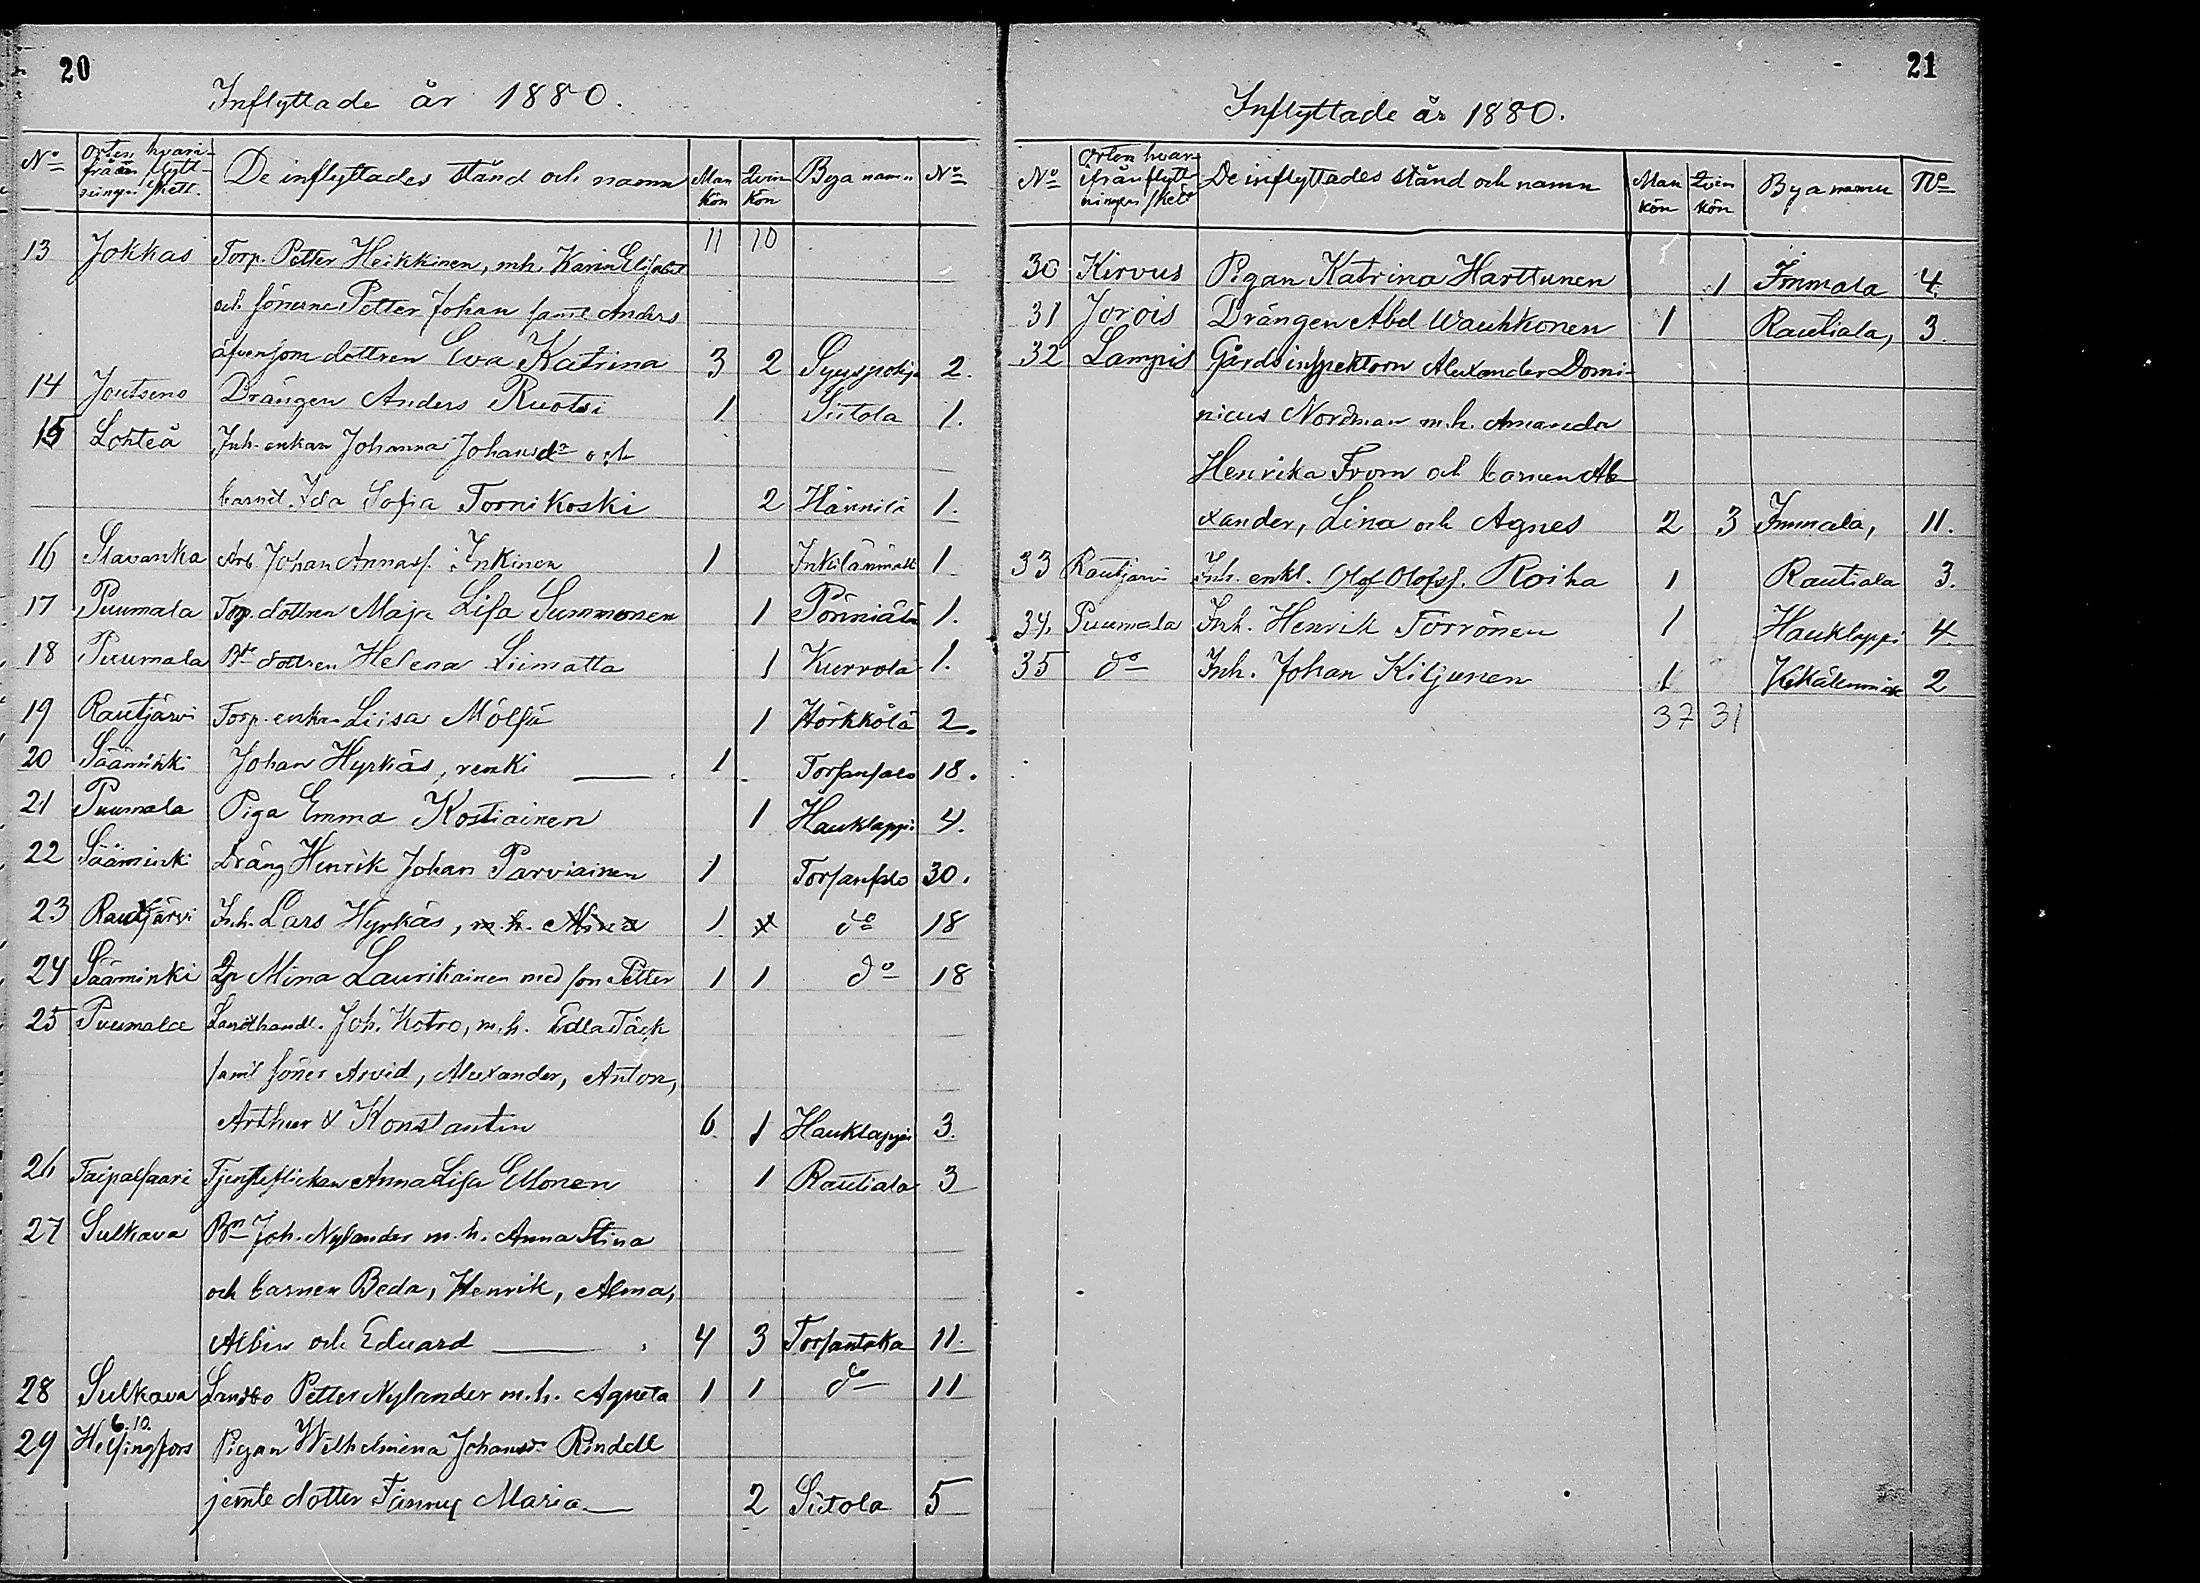 20
Inflyttade år 1880.
No Orten hvari- från flytt- ningen skett. De inflyttades stånd och namn Man kön Qvin kön Bya namn No
11 10
13 Jokkas Torp. Petter Heikkinen, mh. Karin Elisabet
och sönerne Petter Johan samt Anders
äfvensom dottren Eva Katrina 3 2 Syyspohja 2.
14 Joutseno Drängen Anders Ruotsi 1 Siitola 1.
15 Lohteå Inh. enkan Johanna Johansdr och
barnet Ida Sofia Tornikoski 2 Hännilä 1.
16 Slavanka Arb. Johan Annas. Inkinen 1 1
17 Puumala Torp. dottren Maja Lisa Summonen 1 Pönniälä 1.
18 Puumala Bde dottren Helena Liimatta 1 Kurrola 1.
19 Rautjärvi Torp. enkan Liisa Mölsä 1 Hörkkölä 2.
20 Sääminki Johan Hyrkäs, renki 1 Torsansalo 18.
21 Puumala Piga Emma Kostiainen 1 Hauklappi 4.
22 Sääminki Dräng Henrik Johan Parviainen 1 Torsansalo 30.
23 Rautjärvi Inh. Lars Hyrkäs, m.h. Mina 1 do 18
24 Sääminki Qp Mina Laurikainen med son Petter 1 1 do 18
25 Puumala Landthandl. Joh. Kotro, m.h. Edla Täck
samt söner Arvid, Alexander, Anton,
Arthur & Konstantin 6. 1 Hauklappi 3.
26 Taipalsaari Tjensteflickan Anna Lisa Ellonen 1 Rautiala 3
27 Sulkava Bn Joh. Nylander m.h. Anna Stina
och barnen Beda, Henrik, Alma,
Albin och Eduard 4 3 Torsantaka 11.
28 Sulkava Landbo Petter Nylander m.h. Agneta 1 1 do 11
6.12.
29 Helsingfors Pigan Wilhelmina Johansdr Rindell
jemte dotter Fanny Maria 2 Siitola 5
21
Inflyttade år 1880.
No Orten hvar- ifrån flytt- ningen skett De inflyttades stånd och namn Man kön Qvin kön Bya namn No
30 Kirvus Pigan Katrina Harttunen 1 Immala 4.
31 Jorois Drängen Abel Wauhkonen 1 Rautiala, 3.
32 Lampis Gårdsinspektorn Alexander Domi-
nicus Nordman m.h. Amanda
Henrika From och barnen Ale-
xander, Lina och Agnes 2 3 Immala, 11.
33 Rautjärvi Inh. enkl. Olof Olofss. Roiha 1 Rautiala 3.
34. Puumala Inh. Henrik Törrönen 1 Hauklappi 4
35 do Inh. Johan Kiljunen 1 2
37 31